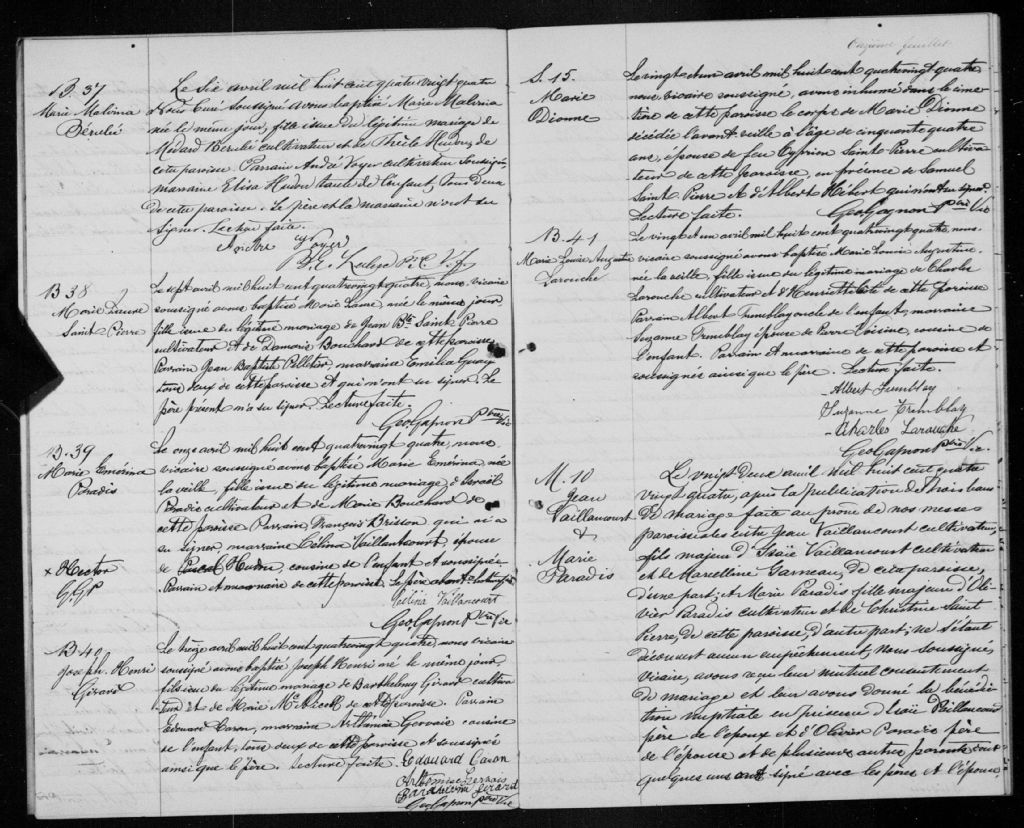 B. 37
Marie Malvina
Bérubé
Le Six avril mil huit cent quatre vingt quatre
Nous Curé soussigné avons baptisé Marie Malvina
née le même jour, fille issue du légitime mariage de
Médard Bérubé cultivateur et de Hudon, de
cette paroisse. Parrain André Voyer cultivateur soussigné,
marraine Elisa Hudon tante de l'enfant, tous deux
de cette paroisse. Le père et la marraine n'ont su
signer. Lecture faite.
André Voyer
B 38
Marie Laure
Saint Pierre
Le sept avril mil huit cent quatrevingt quatre, nous vicaire
soussigné avons baptisé Marie Laure, née le même jour
fille issue du légitime mariage de Jean Bte Saint Pierre
cultivateur et de Bouchard de cette paroisse
Parrain Jean Baptiste Pelletier, marraine Emilia
tous deux de cette paroisse et qui n'ont su signer. Le
père présent n'a su signer. Lecture faite.
Geo Gagnon Ptre Vic
B. 39
Marie Emérina
Paradis
Le onze avril mil huit cent quatrevingt quatre, nous
vicaire soussigné avons baptisé Marie Emérina, née
la veille, fille issue du légitime mariage d'
Paradis cultivateur et de Marie Bouchard de
cette paroisse Parrain François Brisson qui n'a
su signer, marraine Célina Vaillancourt, épouse
x Hector
G.G.P
de Pascal Hudon, cousine de l'enfant et soussignée
Parrain et marraine de cette paroisse. Le père absent. Lecture faite
Celina Vaillancourt
Geo Gagnon Ptre Vic
B 40
Joseph. Henri
Girard
Le treize avril mil huit cent quatrevingt quatre, nous vicaire
soussigné avons baptisé Joseph Henri né le même jour,
fils issu du légitime mariage de Barthelemy Girard cultiva
teur et de Marie de cette paroisse. Parrain
Edouard Caron, marraine Arthémise Gervais cousine
de l'enfant, tous deux de cette paroisse et soussignés
ainsi que le père. Lecture faite.
Edouard Caron
Arthemise Gervais
Barthelemi Girard
Geo Gagnon Ptre Vic
Onzième feuillet
S. 15.
Marie
Dionne
Le vingt et un avril mil huit cent quatrevingt quatre
nous vicaire soussigné, avons inhumé dans le cime
tière de cette paroisse le corps de Marie Dionne
décédée l'avant veille à l'âge de cinquante quatre
ans, épouse de feu Cyprien Saint Pierre cultiva
teur de cette paroisse, en présence de Samuel
Saint Pierre et d'Albert Hébert qui n'ont su signer.
Lecture faite.
Geo Gagnon Ptre Vic
B. 41
Marie Louise Augustine
Larouche
Le vingt et un avril mil huit cent quatrevingt quatre, nous
vicaire soussigné avons baptisé Marie Louise Augustine
née la veille, fille issue du légitime mariage de Charles
Larouche cultivateur et d'Henriette de cette paroisse
Parrain Albert Tremblay oncle de l'enfant, marraine
Suzanne Tremblay épouse de Pierre Voisine, cousine de
l'enfant. Parrain et marraine de cette paroisse et
soussignés ainsi que le père. Lecture faite.
Albert Tremblay
Suzanne Tremblay
Charles Larouche
Geo Gagnon Ptre Vic.
M. 10
Jean
Vaillancourt
&
Marie
Paradis
Le vingt deux avril mil huit cent quatre
vingt quatre, après la publication de trois bans
de mariage faite au prône de nos messes
paroissiales entre Jean Vaillancourt cultivateur,
fils majeur d'Isaïe Vaillancourt cultivateur
et de Marcelline Garneau, de cette paroisse,
d'une part; et Marie Paradis fille majeure d'Oli
vier Paradis cultivateur et de Christine Saint
Pierre, de cette paroisse, d'autre part; ne s'étant
découvert aucun empêchement, Nous soussigné
vicaire, avons reçu leur mutuel consentement
de mariage et leur avons donné la bénédic
tion nuptiale en présence d'Isaïe Vaillancourt
père de l'époux et d'Olivier Paradis père
de l'épouse et de plusieurs autres parents dont
quelques uns ont signé avec les pères et l'épouse.